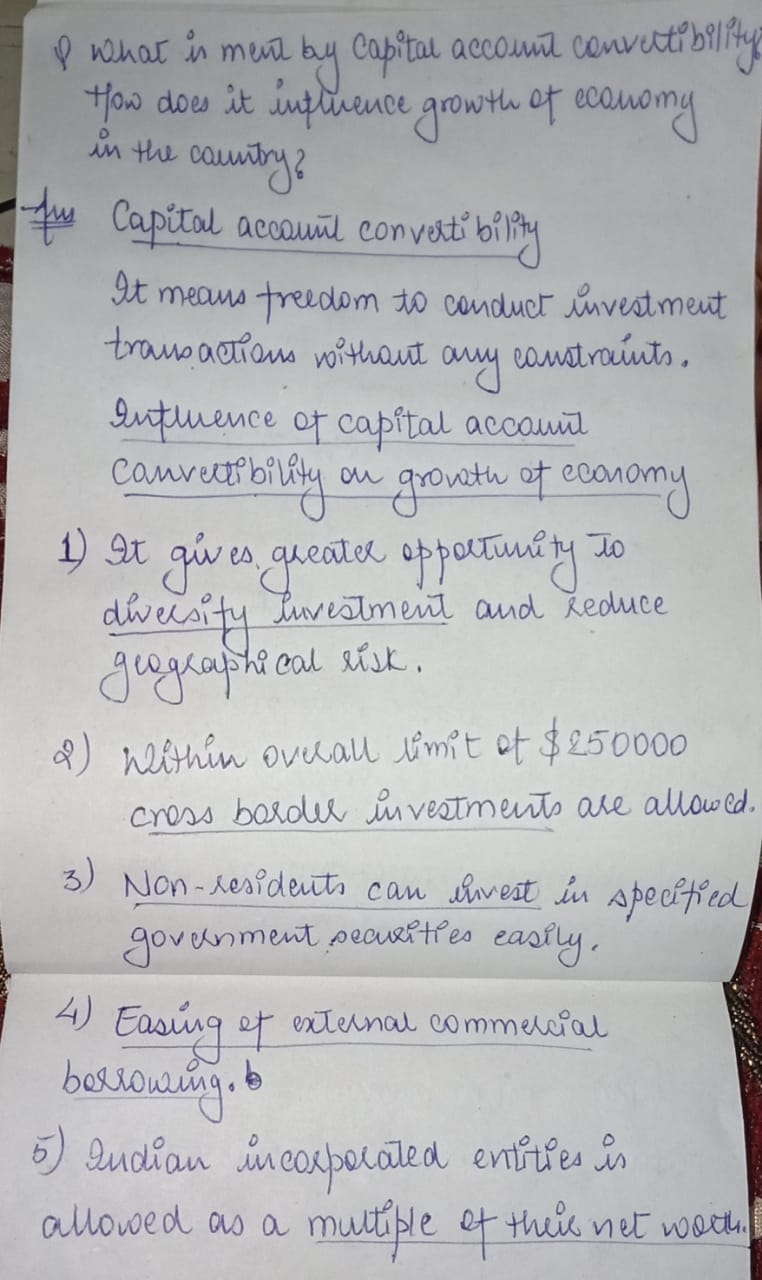 Q What is ment by Capital account convertibility?
How does it influence growth of economy
in the country?
Ans Capital account convertibility
It means freedom to conduct investment
transactions without any constraints.
Influence of capital account
convertibility on growth of economy
1) It gives greater opportunity to
diversify investment and reduce
geographical risk.
2) Within overall limit of $250000
cross border investments are allowed.
3) Non-residents can invest in specified
government securities easily.
4) Easing of external commercial
borrowing.
5) Indian incorporated entities is
allowed as a multiple of their net worth.